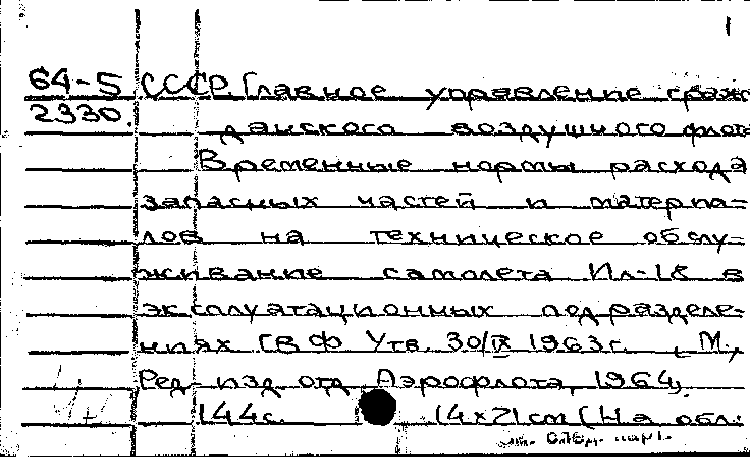 1
64-5 СССР. Главное управление граж-
2330. данского воздушного флота
Временные нормы расхода
запасных частей и материа-
лов на техническое обслу-
живание самолета Ил-18 в
эксплуатационных подразделе-
ниях ГВФ Утв. 30/IX 1963г. [М.,
Ред-изд. отд. Аэрофлота, 1964].
144с. 14х21см (На обл: